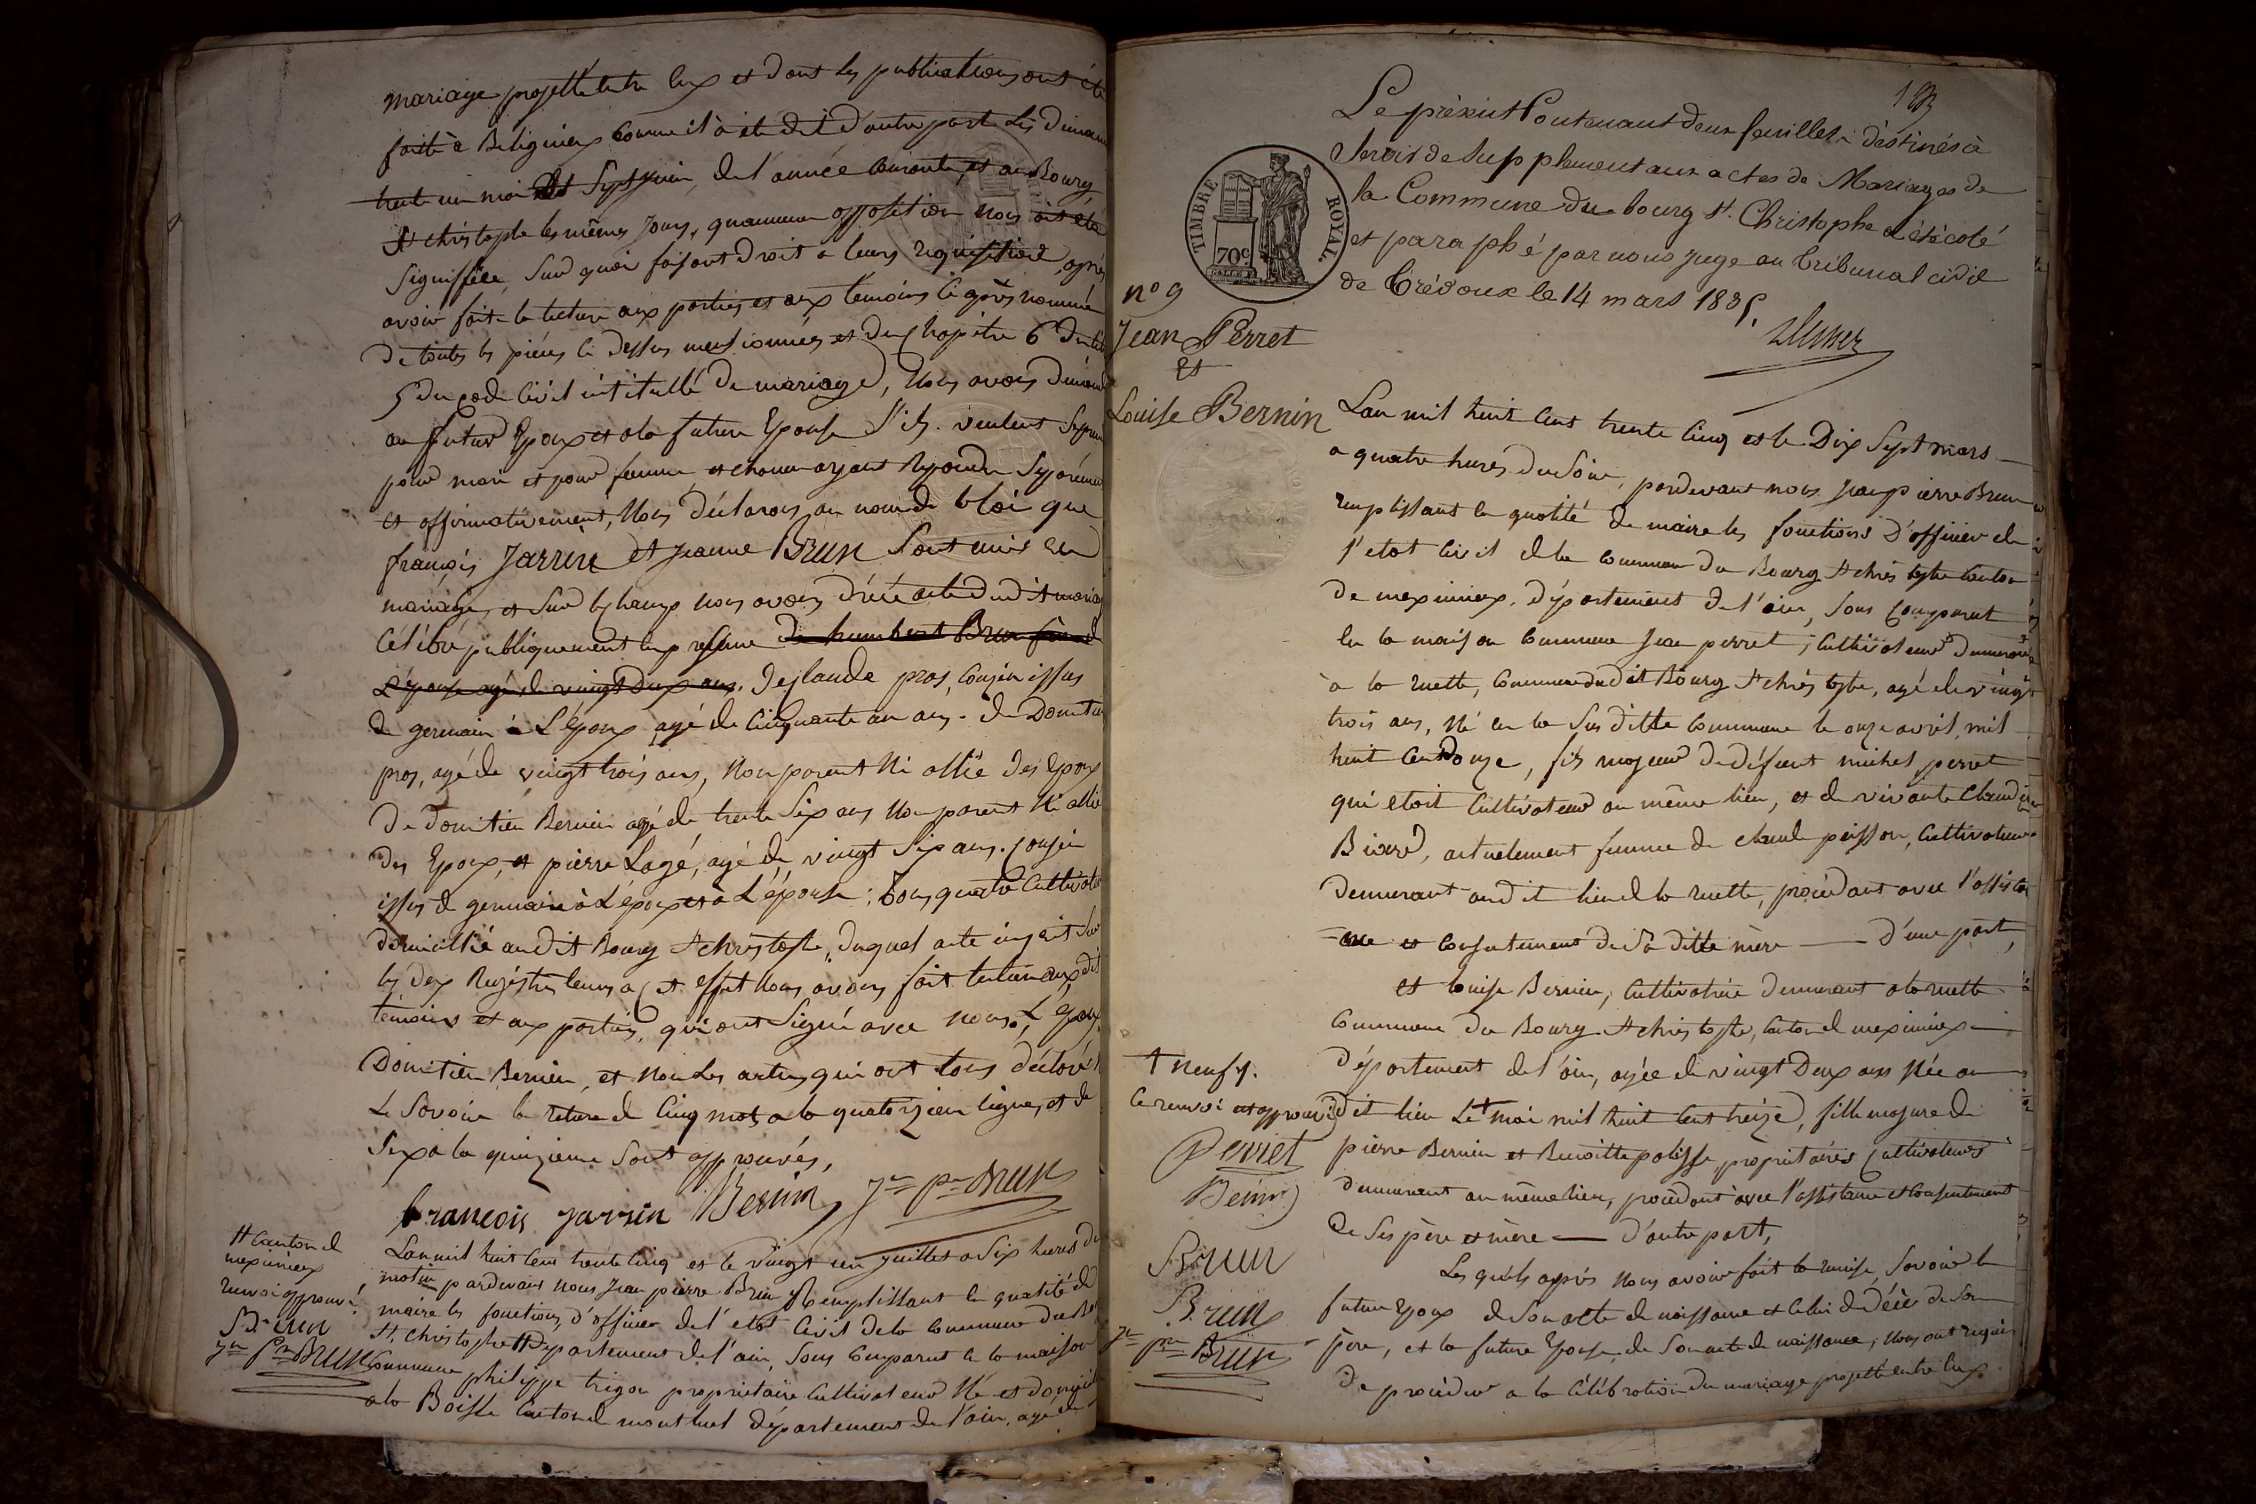 mariage projetté entre eux et dont les publications ont été
faite à Beligneux comme il a été dit d'autre part les diman
trente un mai et sept juin, de l'année courante, et au Bourg
St christophe les mêmes jours, qu'aucune opposition nous ait été
signiffiée, sur quoi faisant droit a leurs réquisitions, après
avoir fait la lecture aux parties et aux temoins ci après nommés
de toutes les pièces ci dessus mentionnées et du chapitre 6 du titre
5 du code civil intitullé du mariage, Nous avons demandé
au futur Epoux et a la future Epouse s'ils veulent se prendre
pour mari et pour femme, et chacun ayant répondu séparément
et affirmativement, Nous déclarons au nom de la loi que
françois Jarrin et jeanne Brun sont unis en
mariage, et sur le champ nous avons dréssé acte dudit mariage
Célébré publiquement en présence de humbert Brun
L'épouse agé de vingt deux ans. De Claude pros, cousin issus
de germain à L'époux agé de cinquante un ans. de Domitien
pros, agé de vingt trois ans, non parent ni allié des Epoux
De Domitien Bernin agé de trente six ans non parent ni allié
des Epoux, et pierre Lagé, agé de vingt six ans. cousin
issus de germain à L'époux et à L'épouse; tous quatre Cultivateurs
domicillié audit Bourg St christophe, duquel acte inscrit sur
les deux Registres tenus a cet effet nous avons fait lecture aux dits
témoins et aux parties, qui ont signé avec nous, L'époux,
Domitien Bernin, et non les autres qui ont tous déclaré ne
le savoir la rature de cinq mots a la quatorzieme ligne, et de
six a la quinzieme sont approuvés,
francois jarrin Bernin jn pre Brun
# Canton de
meximieux
renvoi approuvé.
Brun
jn pre Brun
Lan mil huit cent trente cinq et le vingt un juillet a six heures du
matin pardevant nous Jean pierre Brun Remplissant en qualité de
maire les fonctions d'officier de l'état civil de la commune du Bourg
St. christophe # Département de l'ain, sous comparut en la maison
commune philippe trigon propriétaire cultivateur Né et domicilié
a la Boisse canton de montluel département de l'ain, agé de
193
Le présent Contenant deux feuillets destinés à
Servir de Supplement aux actes de Mariages de
la Commune du bourg St. Christophe a été coté
et paraphé par nous juge au tribunal civil
de Trévoux le 14 mars 1835.
TIMBRE ROYAL
70c.
no 9
Jean Perret
Et
Louise Bernin
Lan mil huit cent trente cinq et le Dix Sept mars
a quatre heures du soir, pardevant nous jean pierre Brun
remplissant en qualité de maire les fonctions d'officier de
l'état civil de la commune du Bourg St christophe canton
de meximieux, département de l'ain, sous comparut
en la maison commune jean perret, Cultivateur demeurant
à la ruette, commune dudit Bourg St christophe, agé de vingt
trois ans, né en la susditte commune le onze avril, mil
huit cent douze, fils majeur de défunt michel perret
qui etoit cultivateur au même lieu, et de vivante Claudine
actuelement femme de claude poisson, cultivateur
demeurant audit lieu de la ruette, procédant avec l'assistan
ce et consentement de sa ditte mère — d'une part,
et louise Bernin, cultivatrice demeurant a la ruette
commune du Bourg St christophe, canton de meximieux
département de l'ain, agée de vingt Deux ans Née au
dit lieu le + mai mil huit cent treize, fille majeure de
pierre Bernin et Benoitte polisse, propriétaires Cultivateurs
demeurant au même lieu, procédant avec l'assistance et consentement
de ses père et mère — d'autre part,
Les quels après nous avoir fait la remise, savoir le
futur epoux de son acte de naissance et celui de décès de son
père, et la future Epouse de son acte de naissance, nous ont requis
de procéder a la célébration du mariage projetté entre eux
+ neuf.
ce renvoi est approuvé
Perret
Bernin
Brun
Brun
jn pre Brun